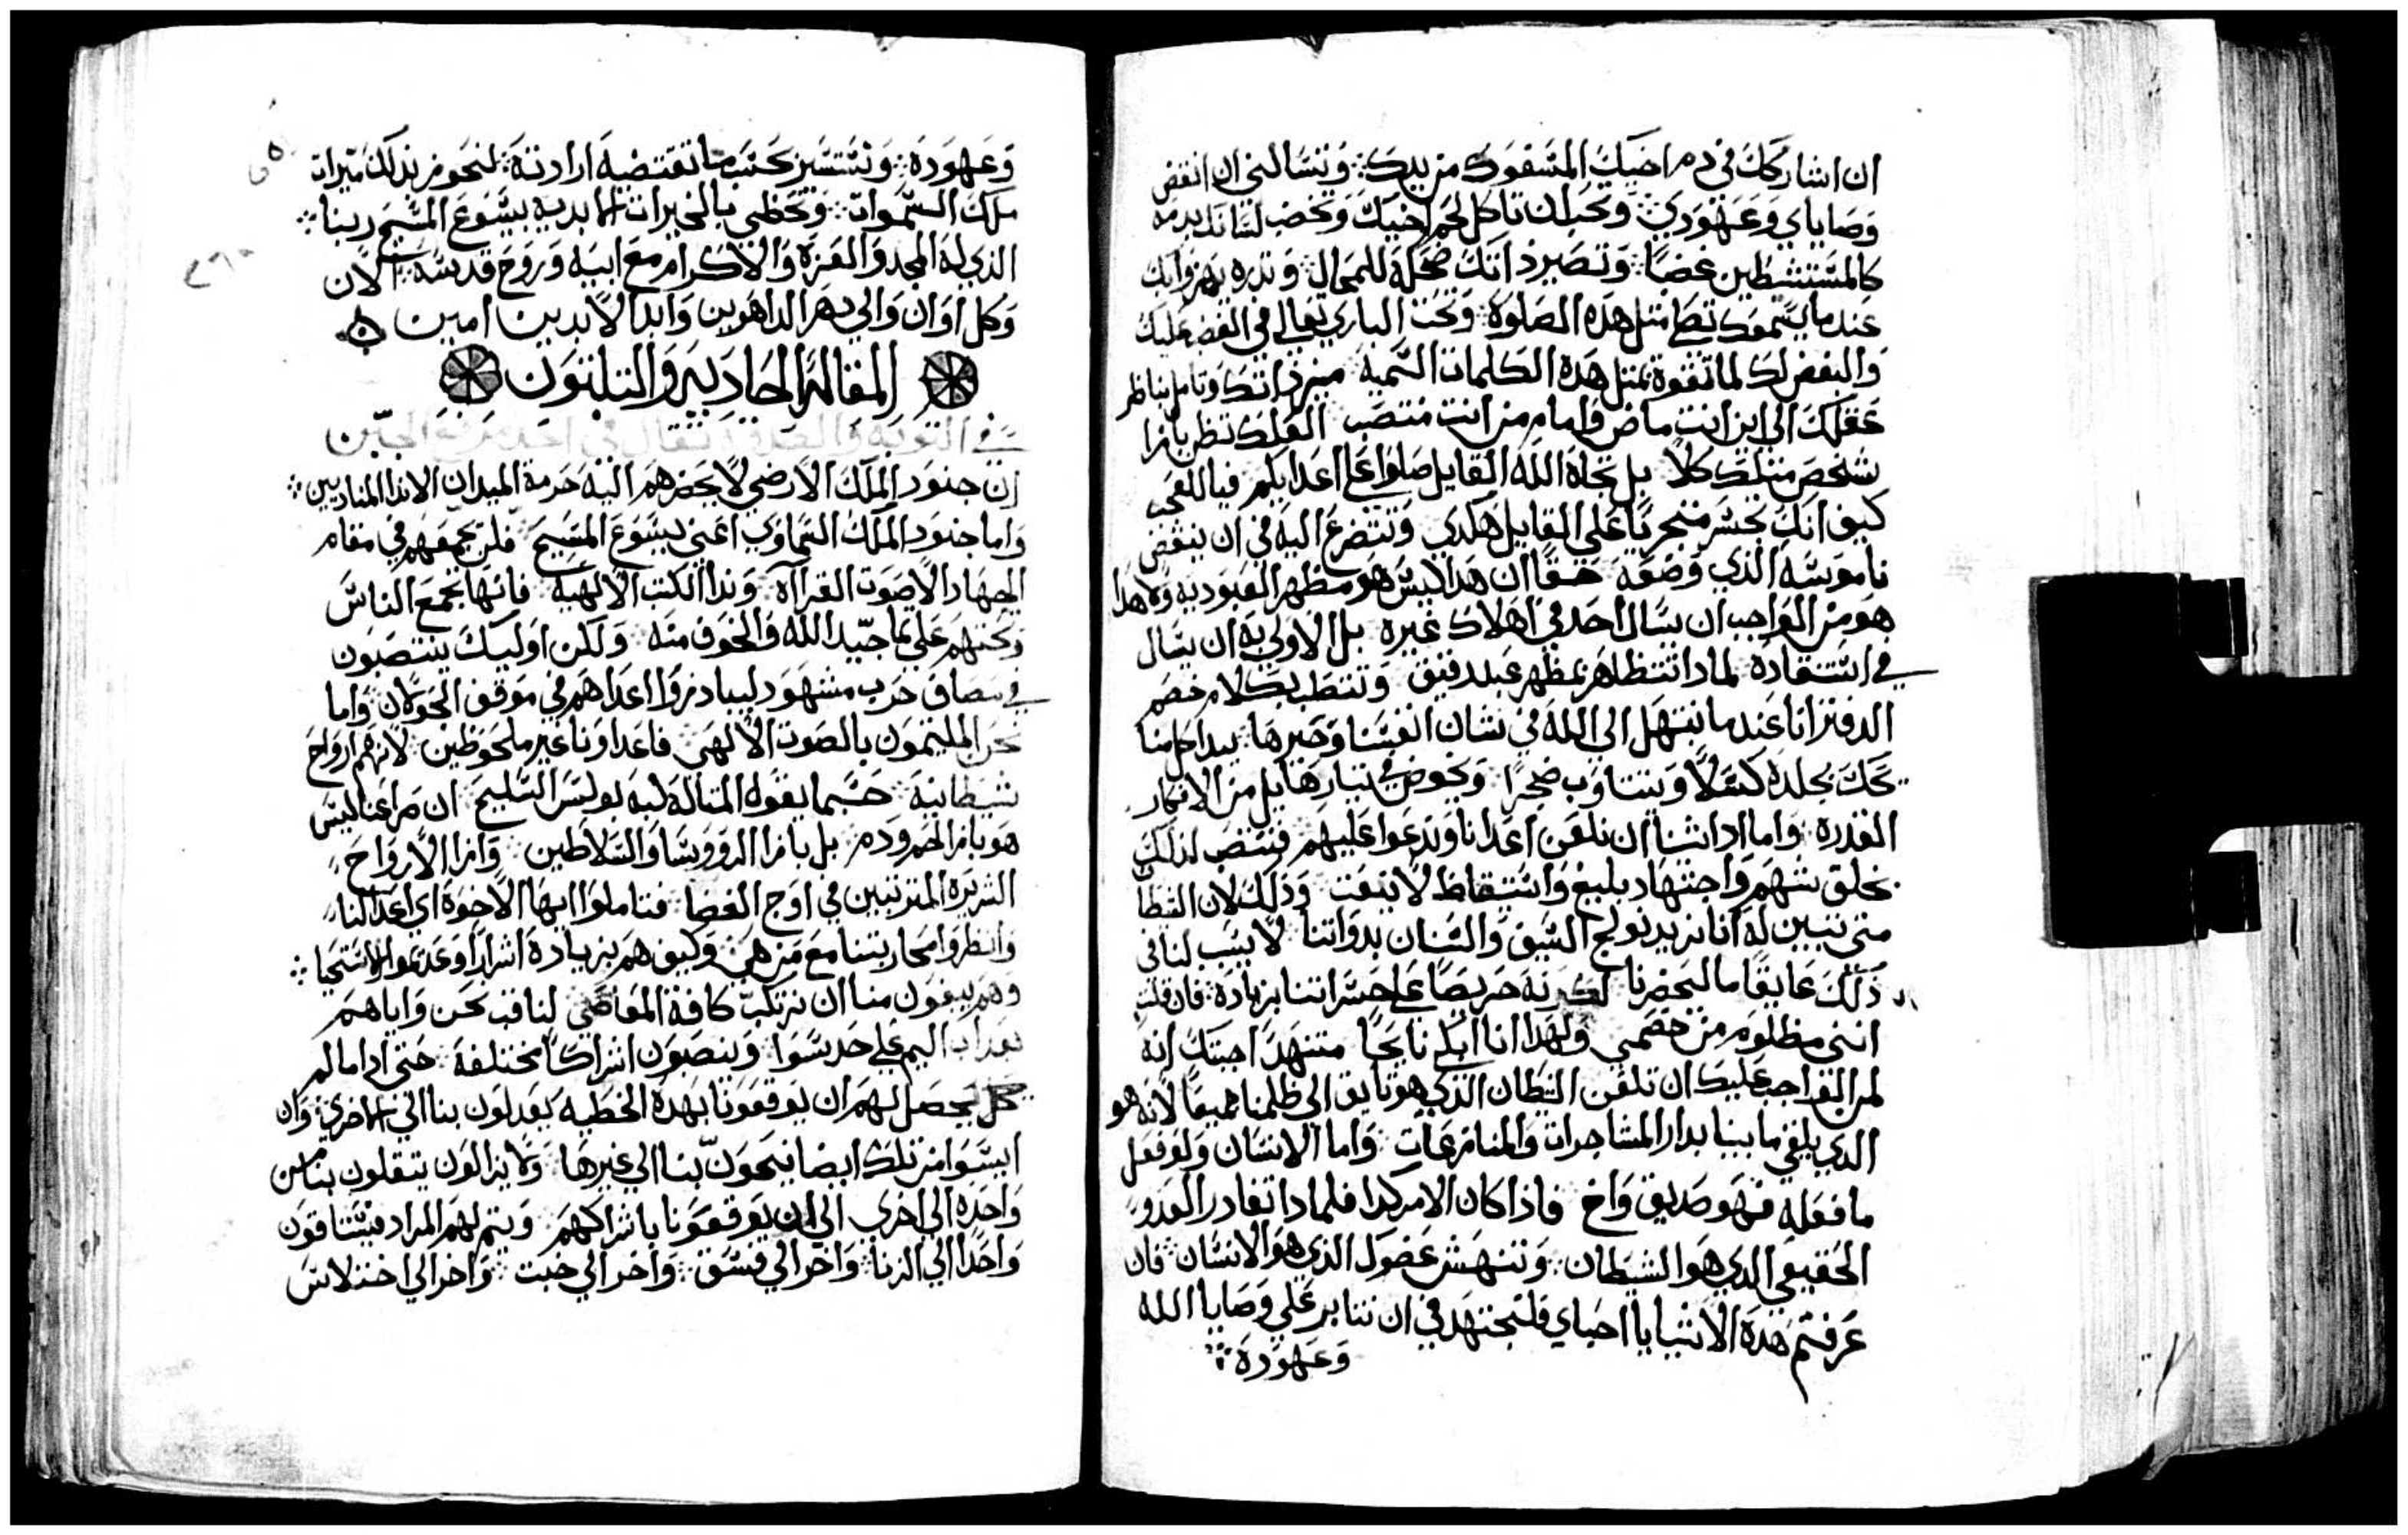 ان اشاركك في دم اخيك المسفوك من يدك ⁘ وتسالني ان انقض
وصاياي وعهودي ⁘ وتحب ان تاكل لحم اخيك وتخضب لسانك بدمه
كالمستشطين غضبا ⁘ وتصير ذاتك ضحكة للمحال ⁘ وتدره
عندما يسمعك تصلي مثل هذه الصلوة ⁘ وتحث الباري تعالي في الغضب عليك
والبغض لك لما تتفوه بمثل هذه الكلمات السمية ميز ذاتك وتامل بناظر
عقلك الي اين انت ماض وامام من انت منتصب العلك تظن بازا
شخص مثلك كلا بل تجاه الله القايل صلوا علي اعدايكم فيا للعجب
كيف انك تجسر متجريا علي القايل هكدي وتتضرع اليه في ان ينقض
ناموسه الذي وضعه حقا ان هدا ليس هو مظهر العبوديه ولا هدا
هو من الواجب ان يسال احد في اهلاك غيره بل الاولي به ان يسال
في استنقاده لمادا تتظاهر بمظهر عبد وتتطلب بكلام خصم
اننا عندما نبتهل الي الله في شان انفسنا وخيرها يبدا كل منا
يحك بجلده كسلا ويتتاوب ضجرا وتخوض في تيارها بل من الافكار
القدره واما ادا شنا ان نلعن اعدانا وندعوا عليهم فننتصب لدلك
بخلق شهم واجتهاد بليغ واستيقاظ لا ينعت وذلك لان الشيطان
متي تبين له اننا نريد نولج السيف والسنان بدواتنا لا يسبب لنا في
ذلك عايقا ما ليحضرنا لكونه حريصا علي خسراتنا بزيادة فان قلت
انني مظلوم من خصمي ولهدا انا ابكي نايحا متنهدا اجبتك انه
لمن الواجب عليك ان تلعن الشيطان الذي هو تايق الي ظلمنا جميعا لانه هو
الدي يلقي ما بيننا بدار المشاجرات والمنازعات واما الانسان ولو فعل
ما فعله فهو صديق واخ فاذا كان الامر كدا فلمادا تغادر العدو
الحقيقي الدي هو الشيطان وتنهش عضوك الذي هو الانسان فان
عرفتم هذه الاشيا يا احباي فلنجتهد في ان نتابر علي وصايا الله
وعهوده ⁘
وعهوده ⁘ ونستسير حسب ما تقتضيه ارادته لنحوز بذلك ميرات
ملك السموات ⁘ ونحظي بالخيرات الابديه بيسوع المسيح ربنا ⁘
الذي له المجد والعزة والاكرام مع ابيه وروح قدسه الان
وكل اوان والي دهر الداهرين وابدا لابدين امين
المقالة الحادية والتلتون
في التوبه والصدقة تقال في احد مرفع الجبن
ان جنود الملك الارضي لا يحضرهم اليه حرمة الميدان الا ندا المنادين ⁘
واما جنود الملك السماوي اعني يسوع المسيح فلن يجمعهم في مقام
الجهاد الا صوت القراآة وندا الكتب الالهيه فانها تجمع الناس
وتحتهم علي تماجيد الله والخوف منه ولكن اوليك ينتصبون
في مصاف حرب مشهود ليبادروا اعداهم في موقف الحولان واما
نحن الملتيمون بالصوت الالهي فاعداونا غير ملحوظين لانهم ارواح
شيطانية حسبما يقول المتاله لبه بولس السليح ان صراعنا ليس
هو بازا لحم ودم بل بازا الروسا والسلاطين وازا الارواح
الشريره المترتبين في اوج الفضا فتاملوا ايها الاخوة اي اعدا لنا
وانظروا محاربتنا مع من هي وكيف هم بزيادة اشرارا وعديموا الاستحيا ⁘
وهم يبغون منا ان نرتكب كافة المعاصي لنعاقب نحن واياهم
بعداب اليم علي حد سوا وينصبون اشراكا مختلفة حتي ادا ما لم
يحصل لهم ان يوقعونا بهده الخطيه يعدلون بنا الي الاخري وان
ايسوا من تلك ايضا ينحون بنا الي غيرها ولا يزالون يتقلون بنا من
واحده الي اخري الي ان يوقعونا باشراكهم ويتم لهم المراد فيستاقون
واحدا الي الزنا ⁘ واخر الي فسق ⁘ واخر الي خبت ⁘ واخر الي اختلاس